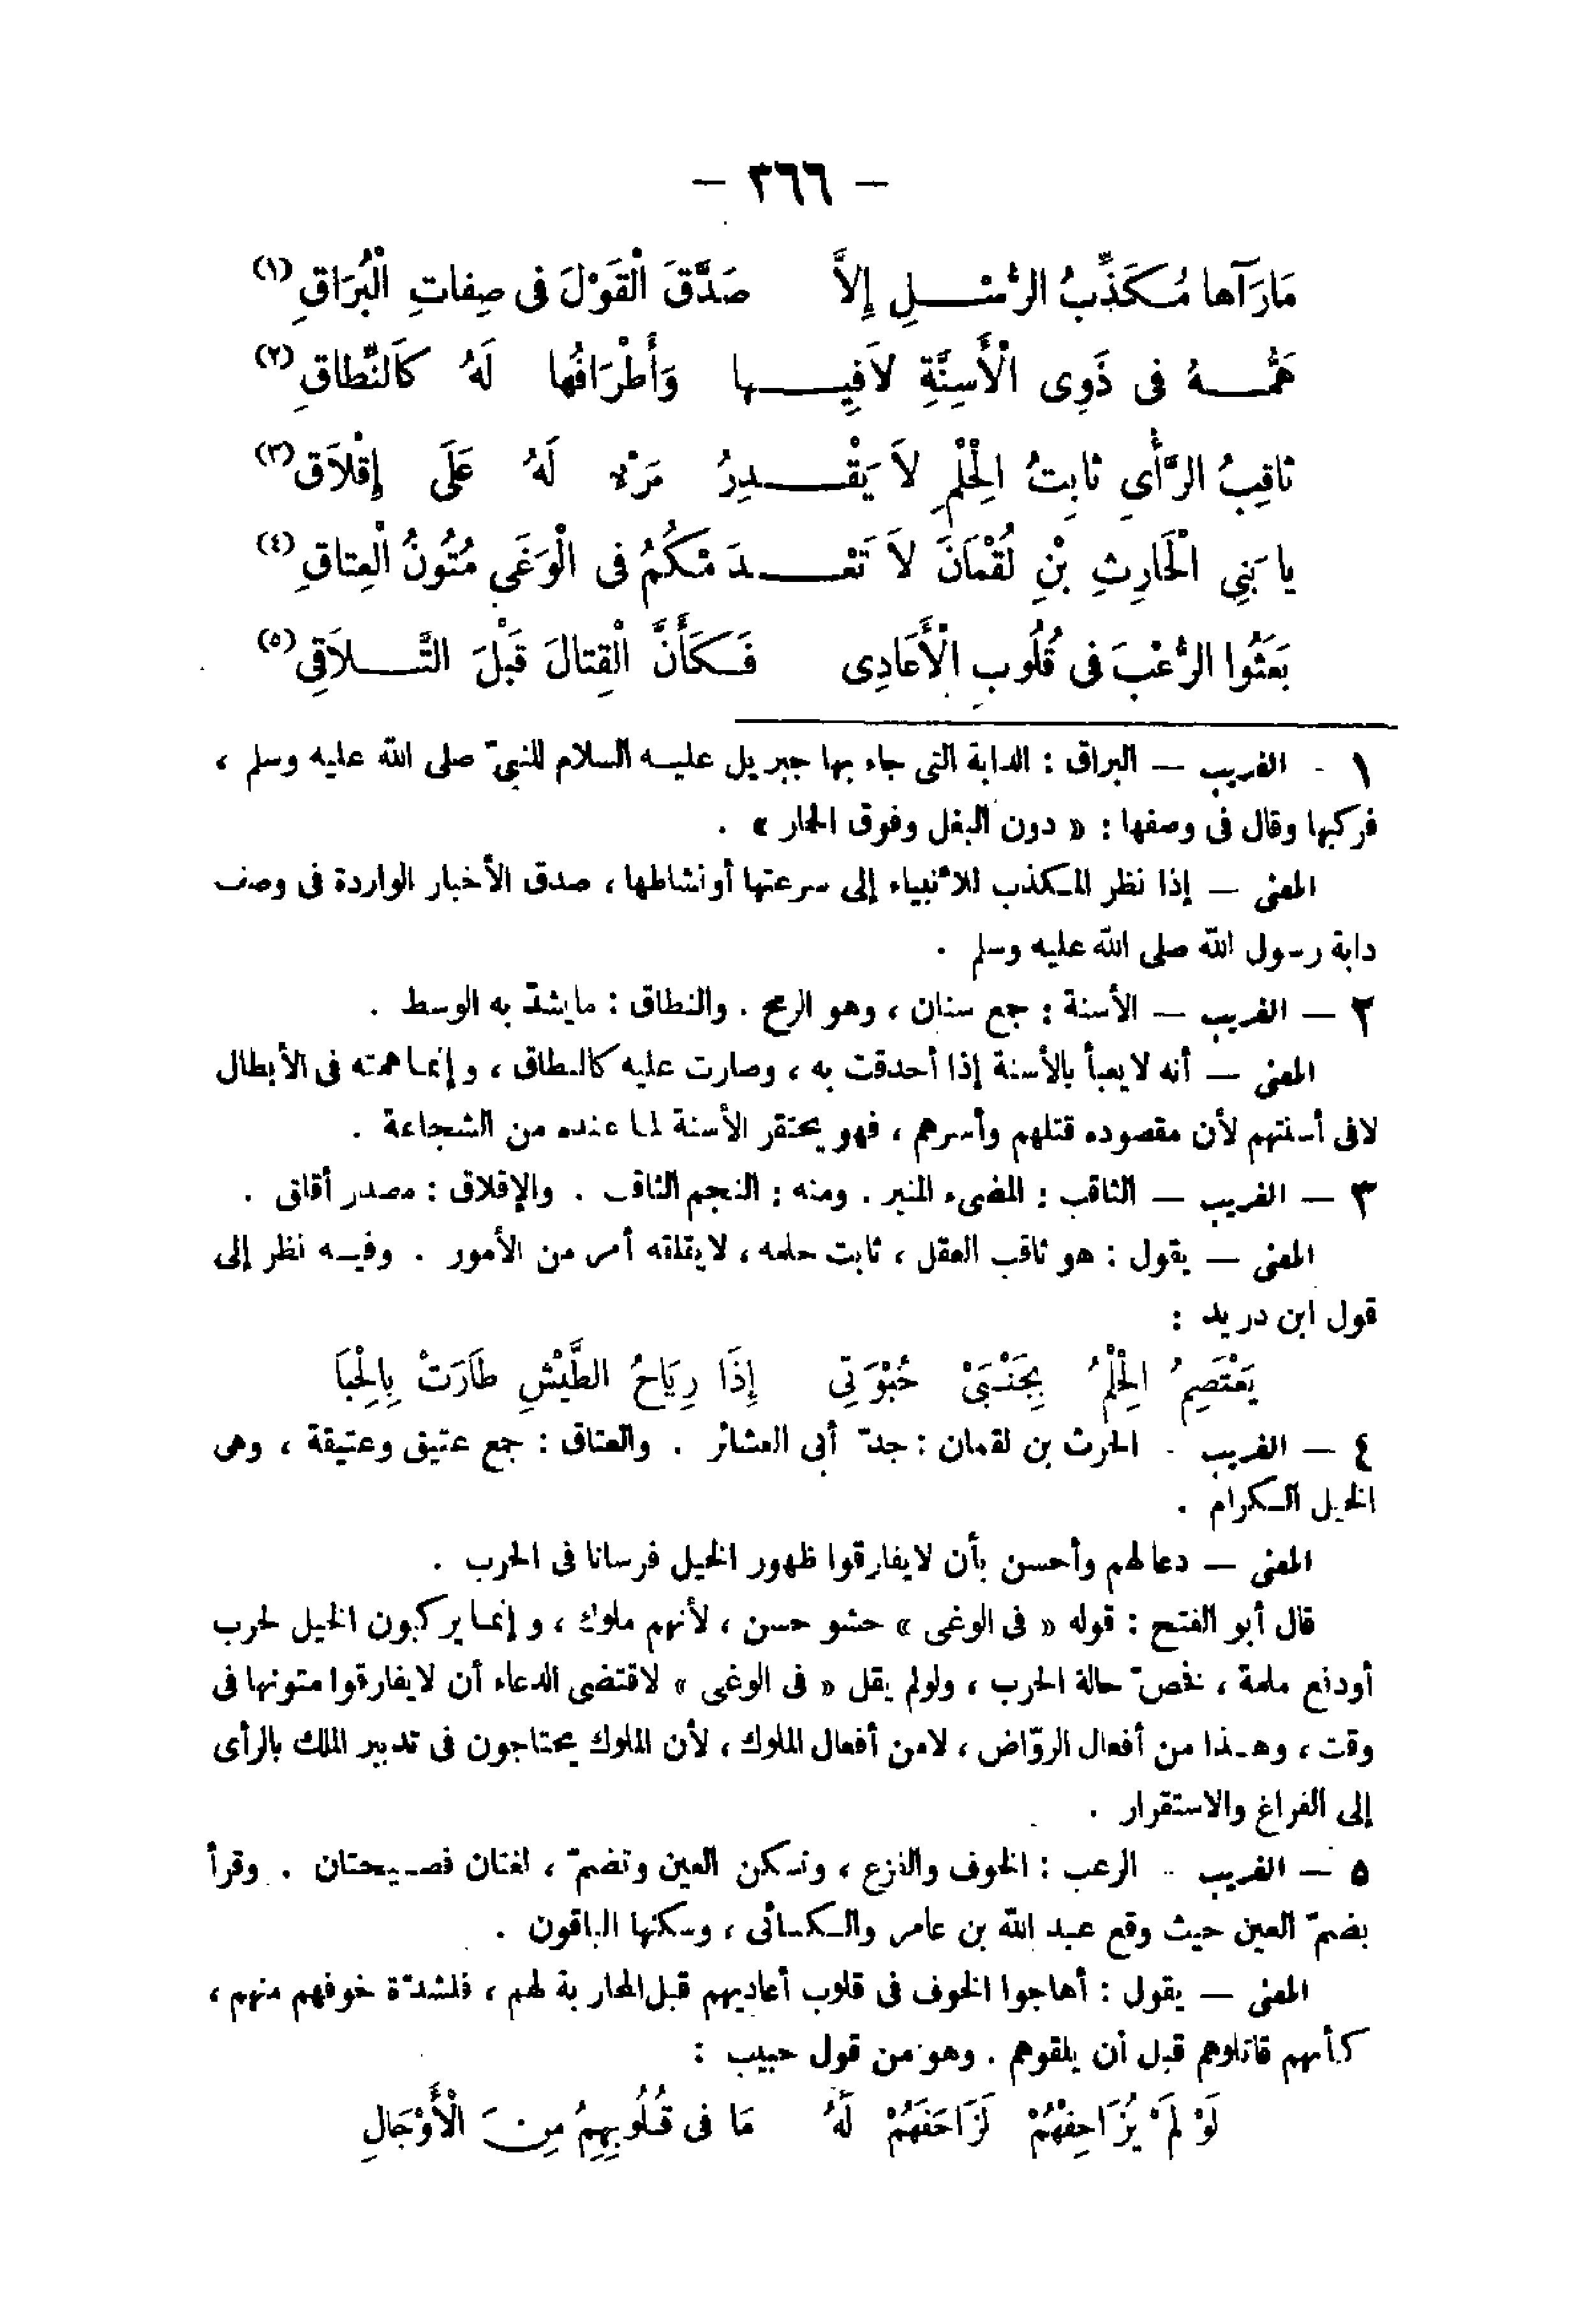 — ٣٦٦ —
مَارَآها مُكَذِّبُ الرُّسْلِ إِلاَّ صَدَّقَ الْقَوْلَ فى صِفاتِ الْبُرَاقِ (١)
هَمُّهُ فى ذَوِى الْأَسِنَّةِ لاَفِيها وَأَطْرَافُها لَهُ كَالنِّطاقِ (٢)
ثاقِبُ الرَّأْىِ ثابِتُ الْحِلْمِ لاَ يَقْدِرُ مَرْءٌ لَهُ عَلَى إِقْلاَقِ (٣)
يا بَنِى الْحَارِثِ بْنِ لُقْمَانَ لاَ تَعْدَ مْكُمُ فى الْوَغَى مُتُونُ الْعِتاقِ (٤)
بَعَثُوا الرُّعْبَ فى قُلُوبِ الْأَعَادِى فَكَأَنَّ الْقِتالَ قَبْلَ التَّلاَقِى (٥)
١ - الغريب — البراق : الدابة التى جاء بها جبريل عليه السلام للنبىّ صلى الله عليه وسلم ،
فركبها وقال فى وصفها : « دون البغل وفوق الحمار » .
المعنى — إذا نظر المكذب للأنبياء إلى سرعتها أونشاطها ، صدق الأخبار الواردة فى وصف
دابة رسول الله صلى الله عليه وسلم .
٢ — الغريب — الأسنة : جمع سنان ، وهو الرمح . والنطاق : مايشدّ به الوسط .
المعنى — أنه لايعبأ بالأسنة إذا أحدقت به ، وصارت عليه كالنطاق ، وإنما همته فى الأبطال
لافى أسنتهم لأن مقصوده قتلهم وأسرهم ، فهو يحتقر الأسنة لما عنده من الشجاعة .
٣ — الغريب — الثاقب : المضىء المنير . ومنه : النجم الثاقب . والإقلاق : مصدر أقلق .
المعنى — يقول : هو ثاقب العقل ، ثابت حلمه ، لايقلقه أمر من الأمور . وفيه نظر إلى
قول ابن دريد :
يَعْتَصِمُ الْحِلْمُ بِجَنْبَىْ حُبْوَتِى إِذَا رِيَاحُ الطَّيْشِ طَارَتْ بِالْحِبَا
٤ — الغريب - الحرث بن لقمان : جدّ أبى العشائر . والعتاق : جمع عتيق وعتيقة ، وهى
الخيل الكرام .
المعنى — دعا لهم وأحسن بأن لايفارقوا ظهور الخيل فرسانا فى الحرب .
قال أبو الفتح : قوله « فى الوغى » حشو حسن ، لأنهم ملوك ، وإنما يركبون الخيل لحرب
أودفع ملمة ، فخصّ حالة الحرب ، ولولم يقل « فى الوغى » لاقتضى الدعاء أن لايفارقوا متونها فى
وقت ، وهذا من أفعال الروّاض ، لامن أفعال الملوك ، لأن الملوك يحتاجون فى تدبير الملك بالرأى
إلى الفراغ والاستقرار .
٥ — الغريب - الرعب : الخوف والفزع ، وتسكن العين وتضمّ ، لغتان فصيحتان . وقرأ
بضمّ العين حيث وقع عبد الله بن عامر والكسائى ، وسكنها الباقون .
المعنى — يقول : أهاجوا الخوف فى قلوب أعاديهم قبل المحاربة لهم ، فلشدّة خوفهم منهم ،
كأنهم قاتلوهم قبل أن يلقوهم . وهو من قول حبيب :
لَوْ لَمْ يُزَاحِفْهُمْ لَزَاحَفَهُمْ لَهُ مَا فى قُلُوبِهِمُ مِنَ الْأَوْجَالِ